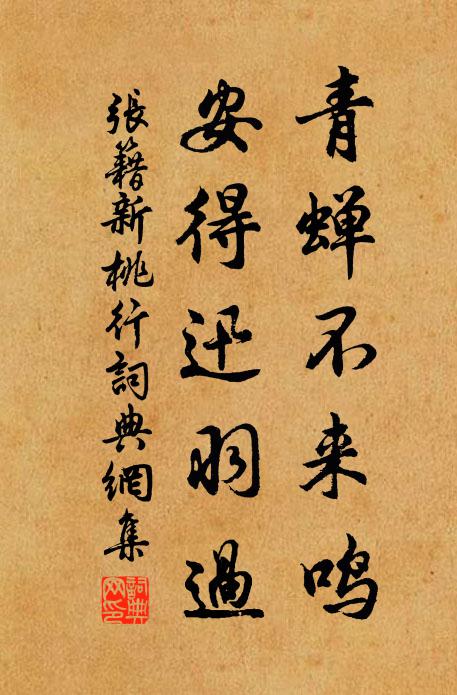 青蝉不来鸣
安得迅羽過
張籍新桃行詞典網集
詞典网印